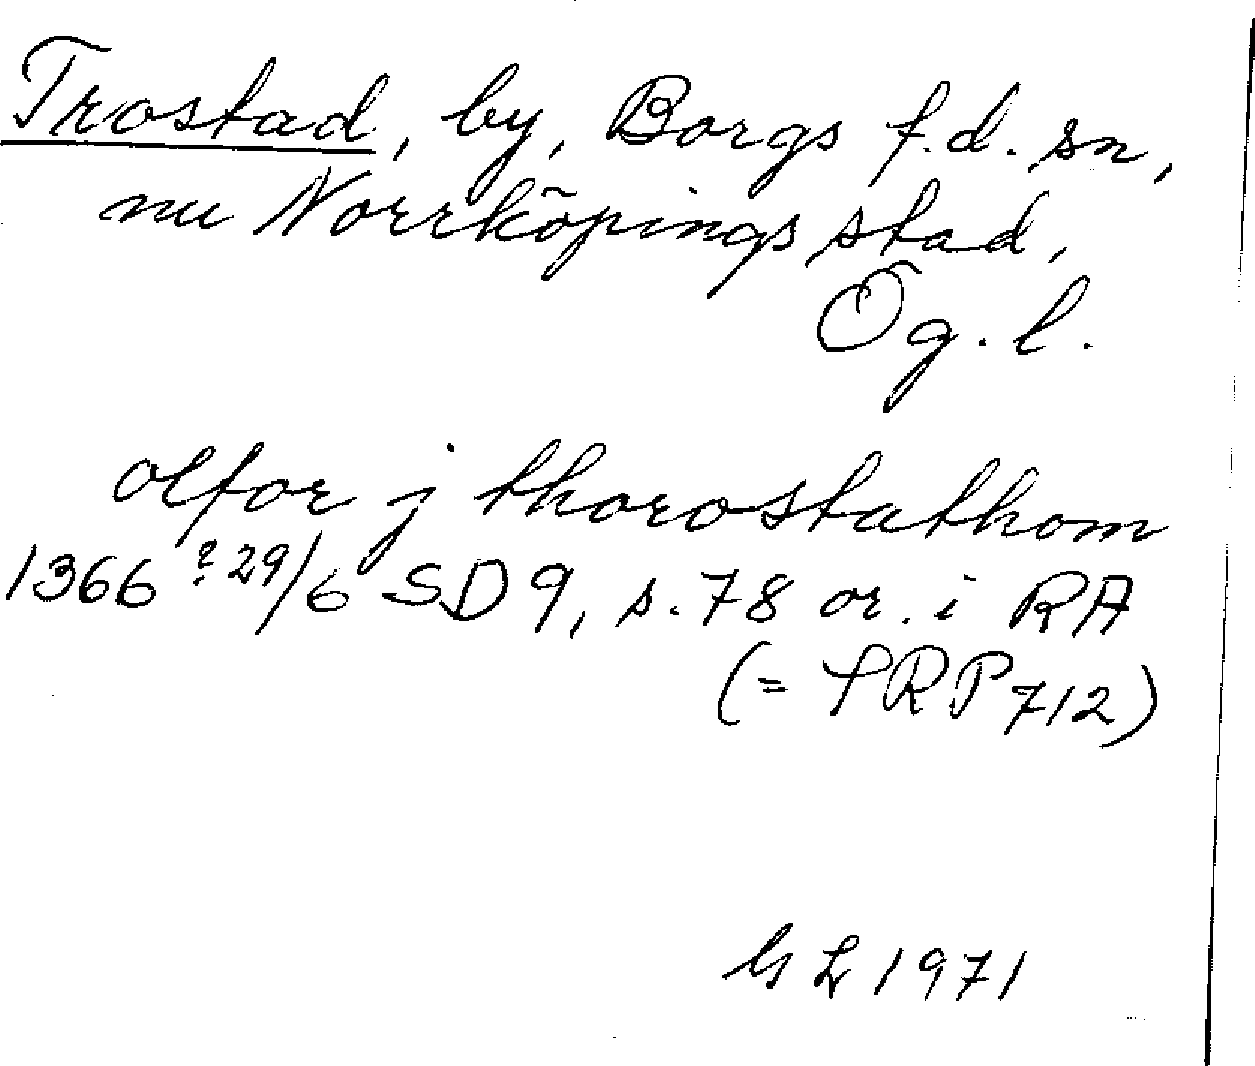 Trostad, by, Borgs f.d. sn,
nu Norrköpings stad,
Ög. l.
olfor j thorostathom
1366 ? 29/6 SD 9, s. 78 or. i RA
(= SRP 712)
GL 1971